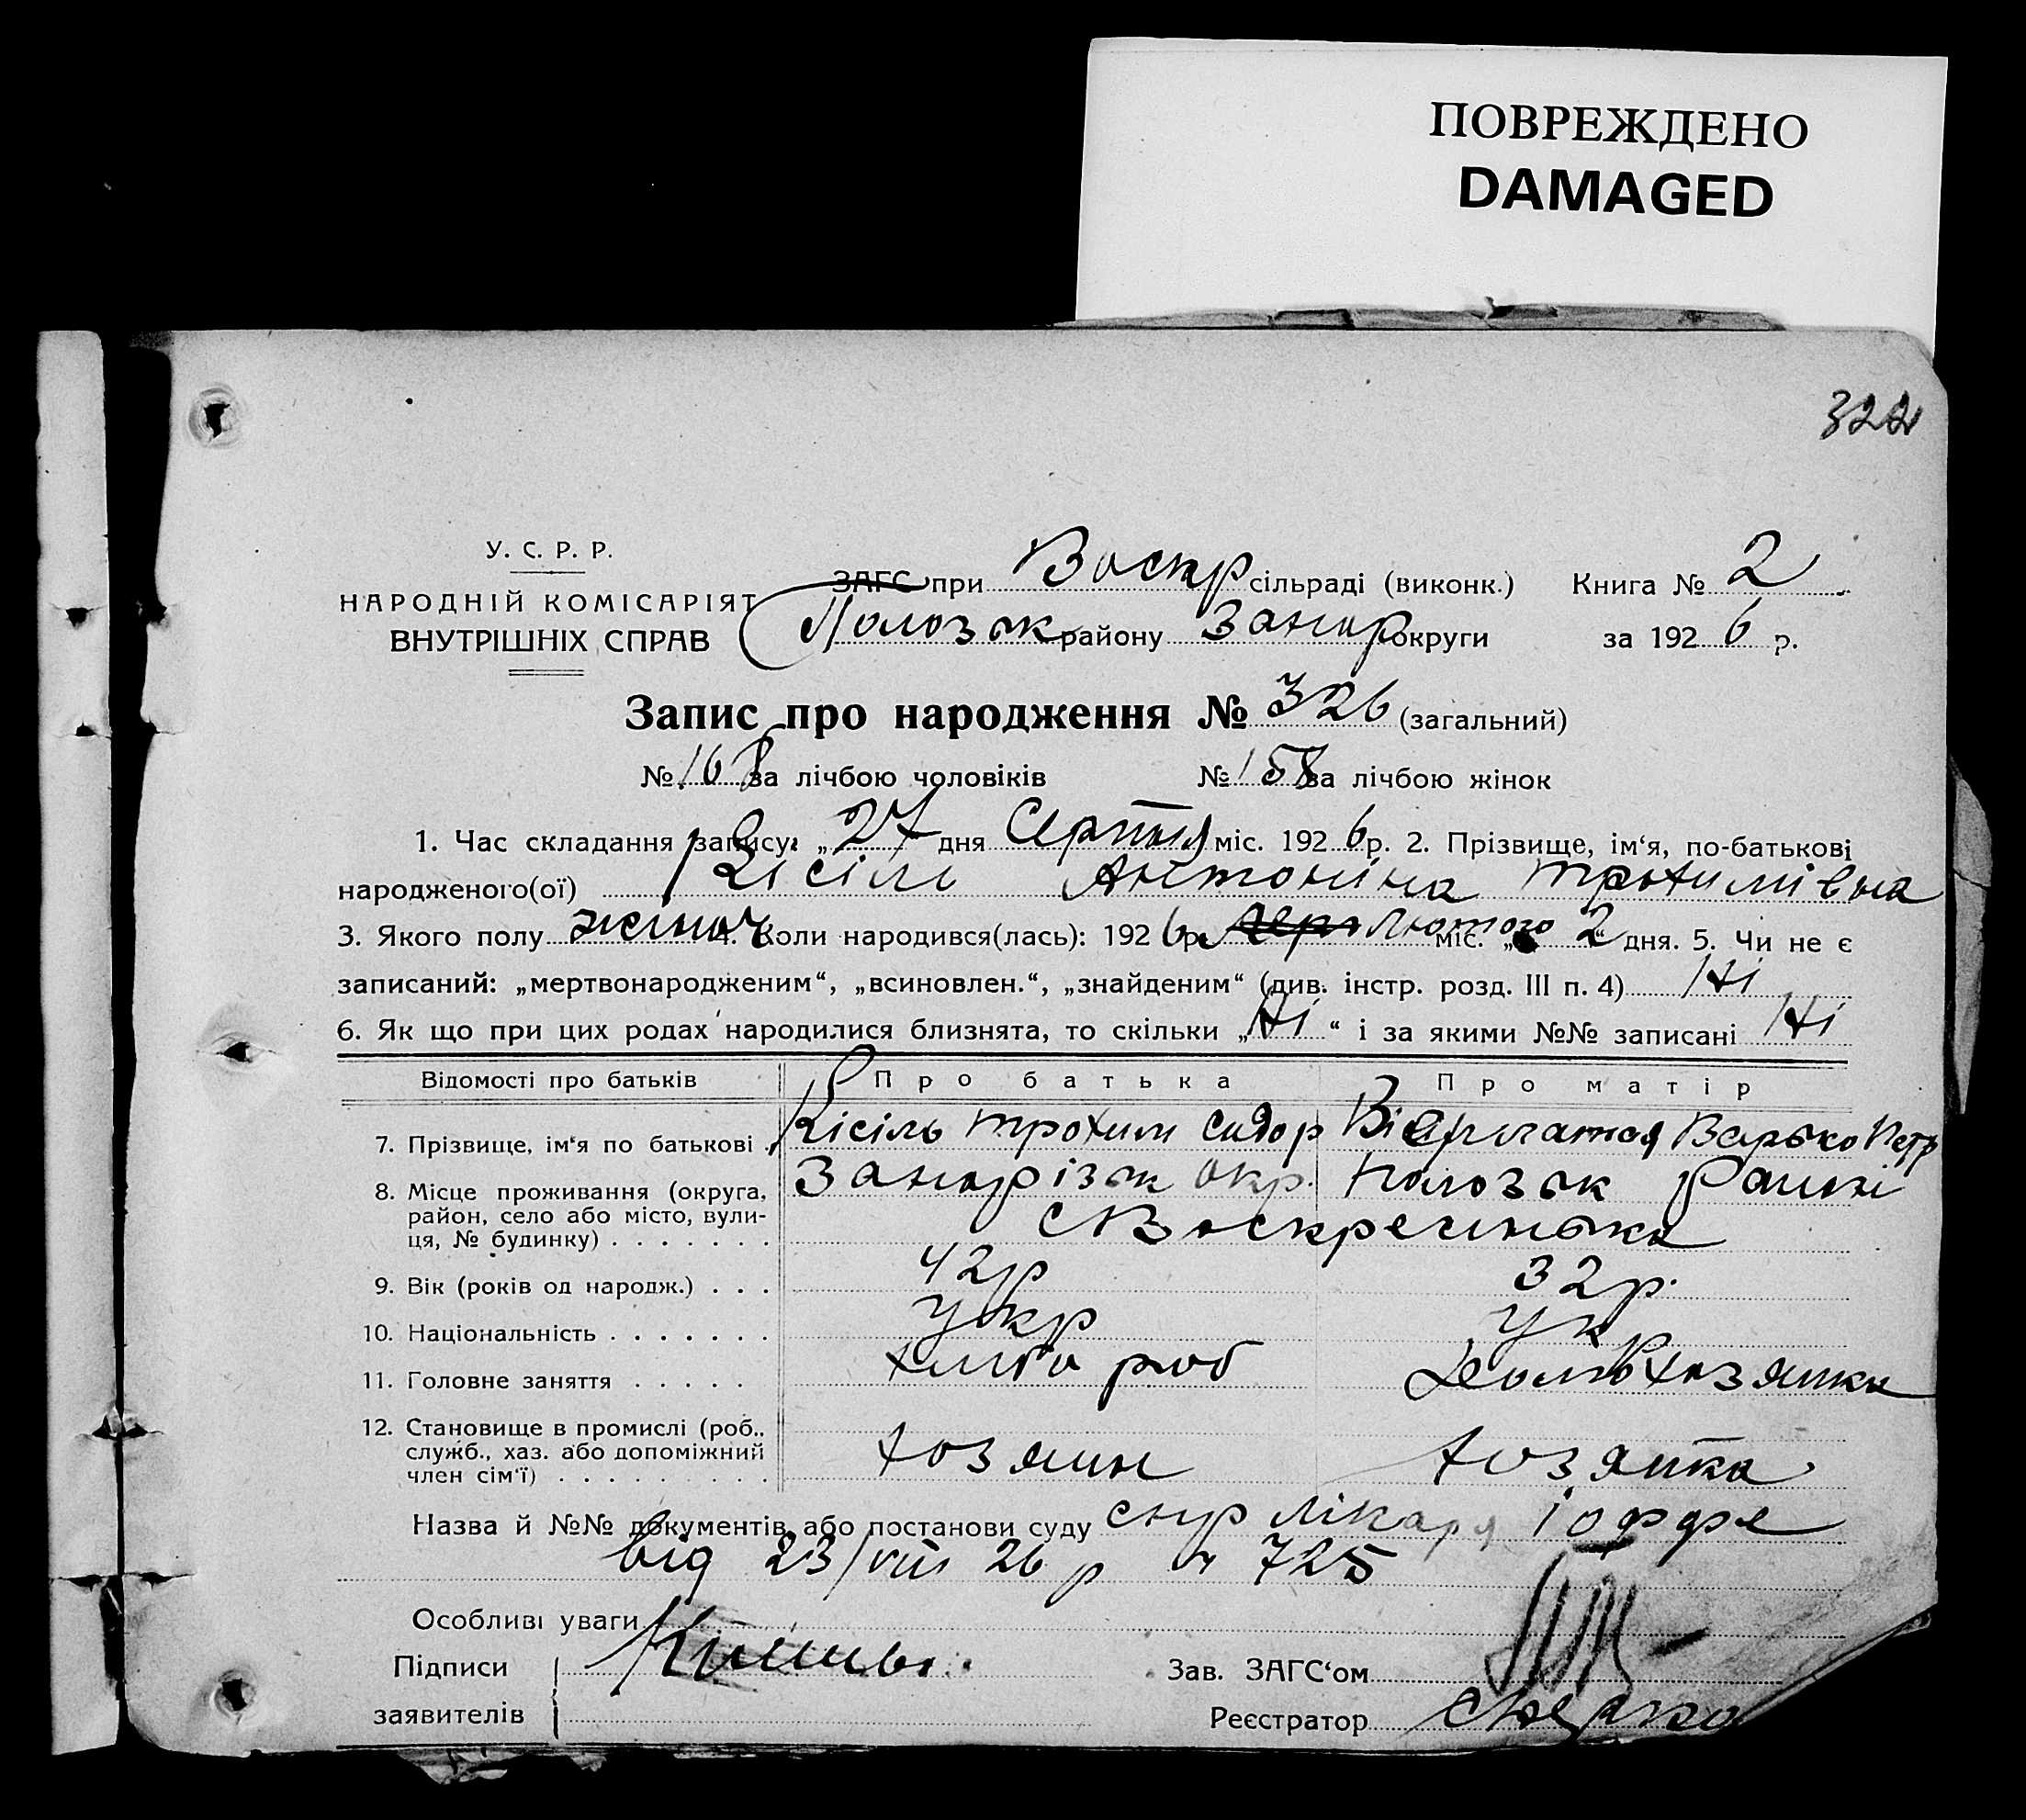 ПОВРЕЖДЕНО
DAMAGED
322
У. С. Р. Р.
НАРОДНІЙ КОМІСАРІЯТ
ВНУТРІШНІХ СПРАВ
ЗАГС при Воскр сільраді (виконк.) Книга № 2
Полозьк району Запор округи за 1926 р.
Запис про народження № 326 (загальний)
№ 168 за лічбою чоловіків № 158 за лічбою жінок
1. Час складання запису: „27 дня Серпня міс. 1926 р. 2. Прізвище, ім‘я, по-батькові
народженого(ої) Кісіль Антоніна Трохимівна
3. Якого полу жіноч 4. Коли народився(лась): 1926 р. Серп Лютого міс. „ 2 “ дня. 5. Чи не є
записаний: „мертвонародженим“, „всиновлен.“, „знайденим“ (див. інстр. розд. III п. 4) Ні
6. Як що при цих родах народилися близнята, то скільки „Ні“ і за якими №№ записані Ні
Відомості про батьків Про батька Про матір
7. Прізвище, ім‘я по батькові . Кісіль Трохим Сидор Варько Петр
8. Місце проживання (округа, Запорізьк окр. Полозьк
район, село або місто, вули-
ця, № будинку) . . . . . . . С Воскресинька
9. Вік (років од народж.) . . . 42р 32р.
10. Національність . . . . . . . Укр Укр
11. Головне заняття . . . . . хлібороб Домохозяйка
12. Становище в промислі (роб.,
служб., хаз. або допоміжний
член сім‘ї) . . . . . . . . . хозяин хозяйка
Назва й №№ документів або постанови суду лікаря Іоффе
від 23/VIII 26 р № 725
Особливі уваги
Підписи Зав. ЗАГС‘ом
заявителів Реєстратор